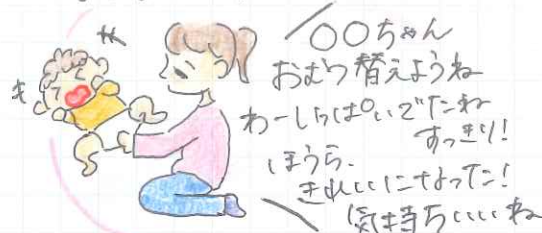 〇〇ちゃん
おむつ替えようね
わーいっぱいでたね
すっきり!
ほうら、
きれいになった!
気持ちいいね